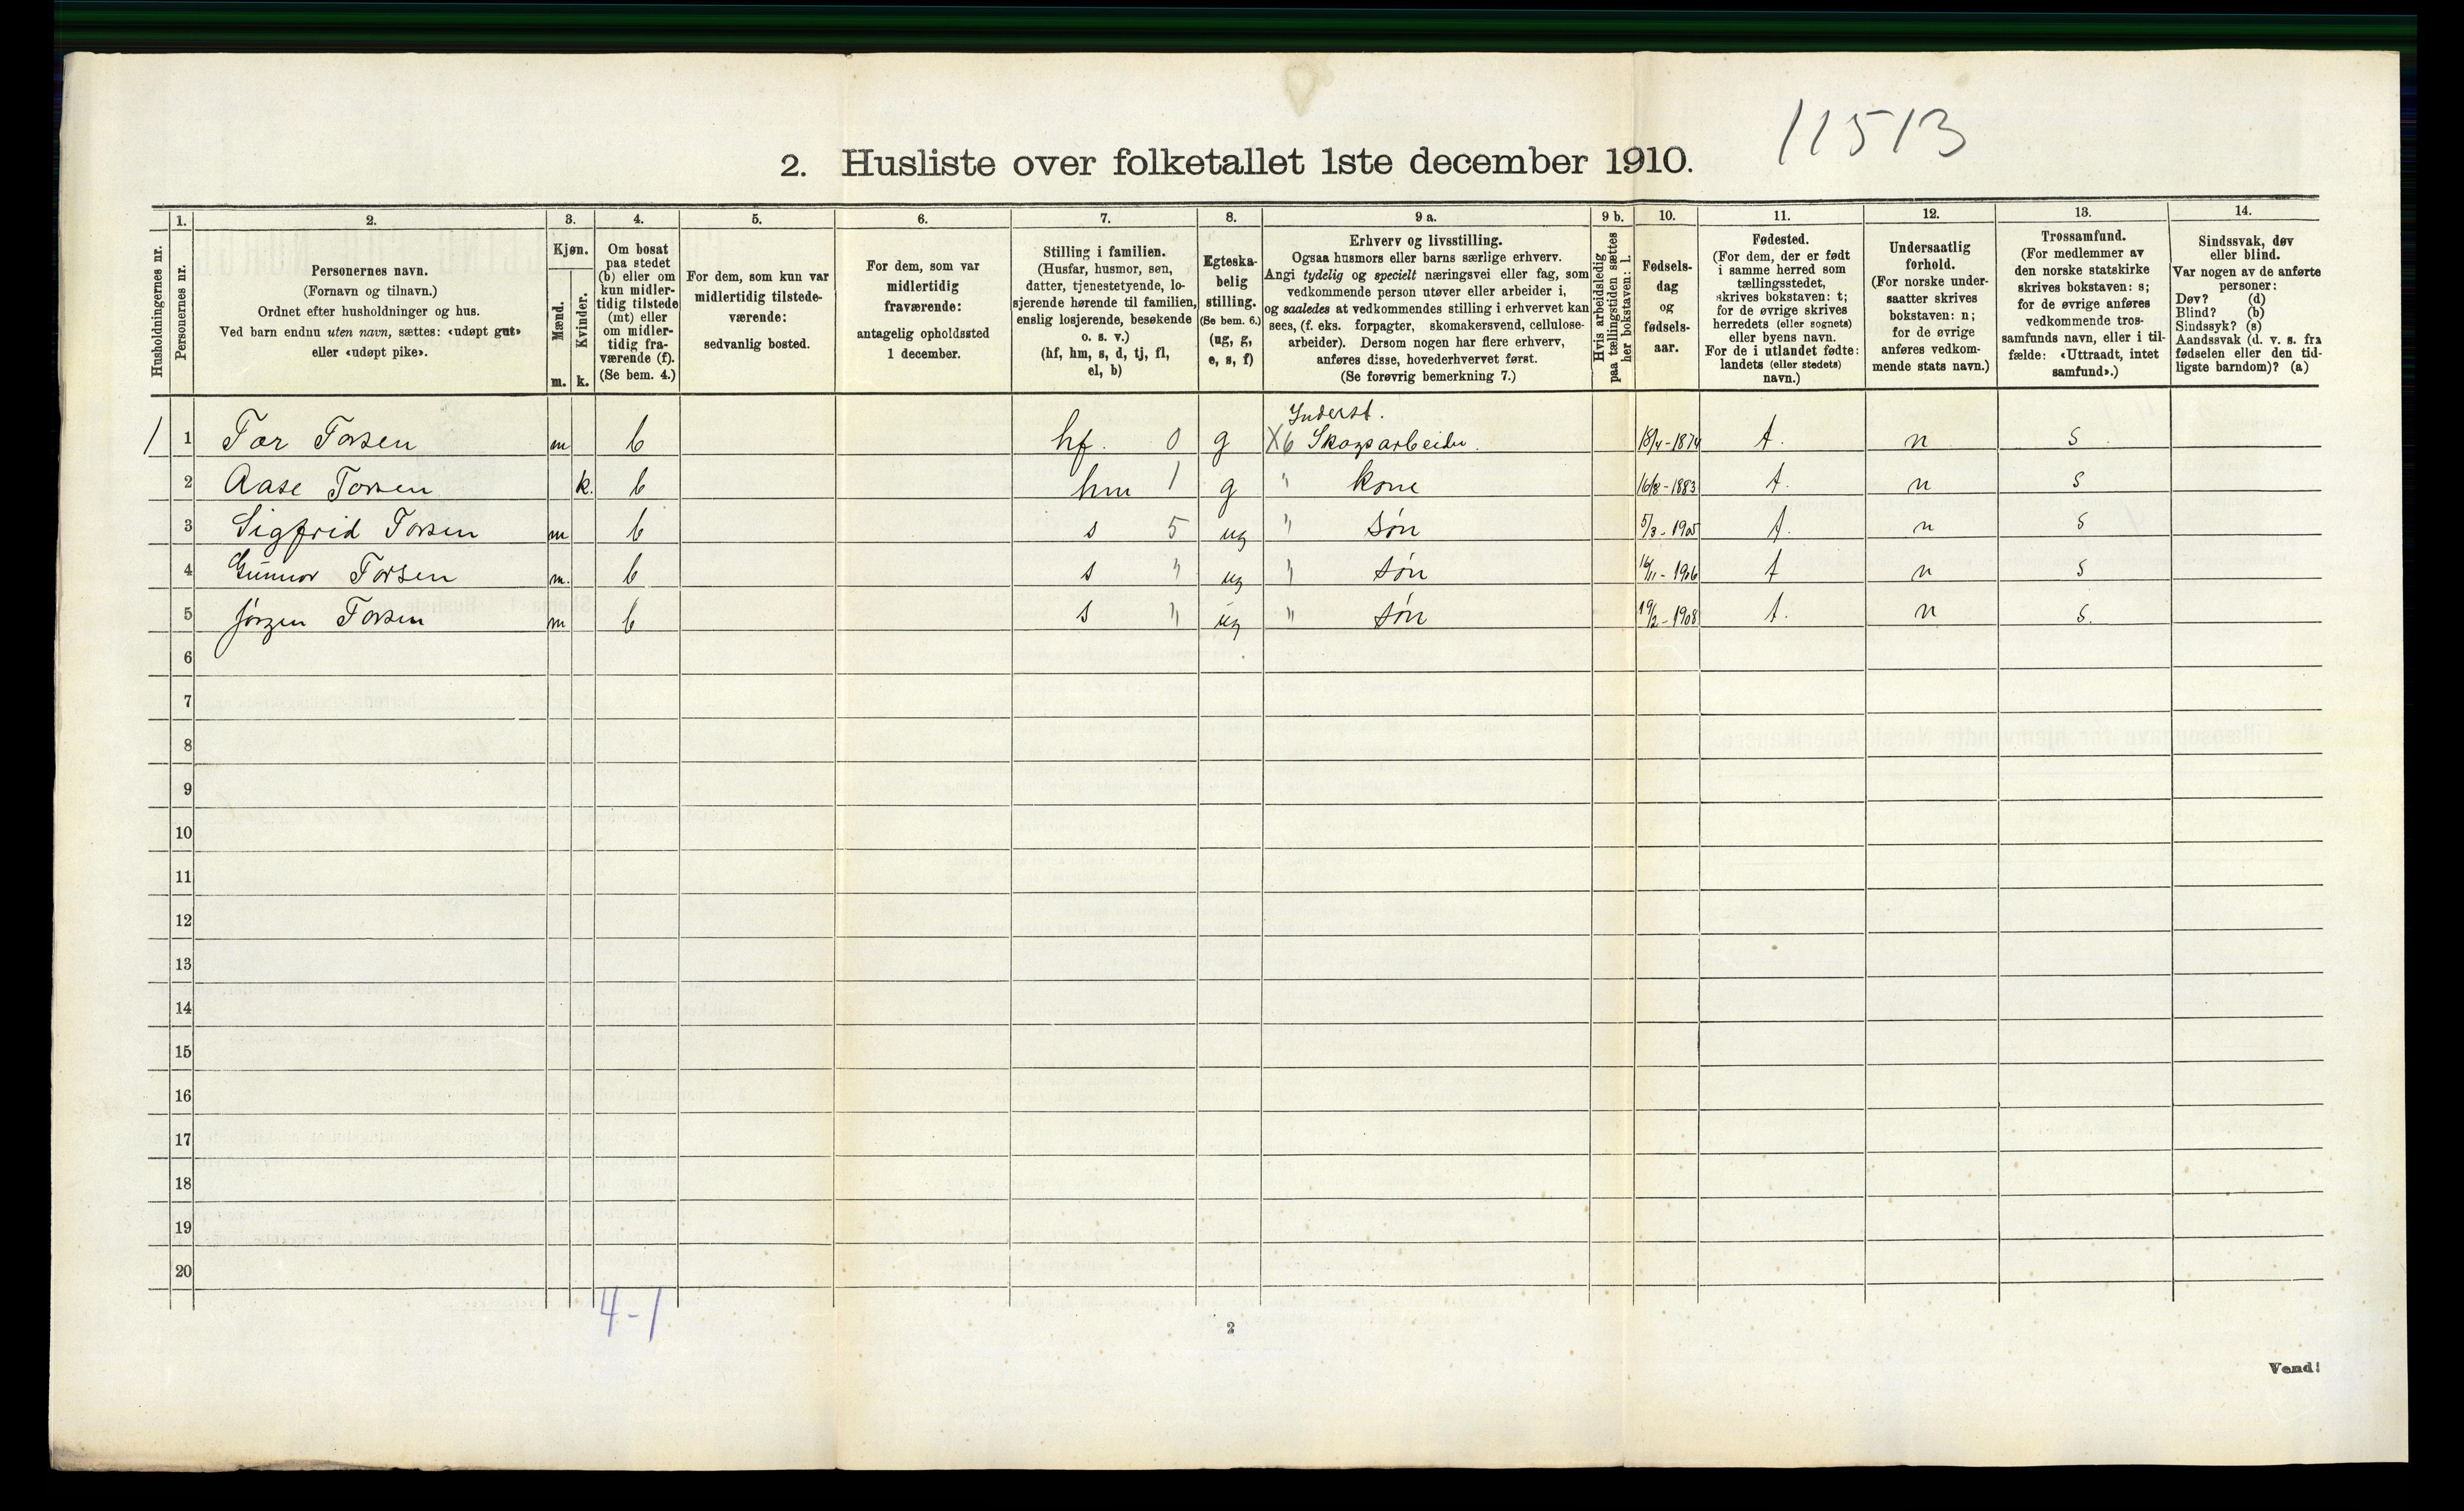 11513
2. Husliste over folketallet 1ste december 1910.
Husholdningernes nr.
1.
Personernes nr.
2.
Personernes navn.
(Fornavn og tilnavn.)
Ordnet efter husholdninger og hus.
Ved barn endnu uten navn, sættes: «udøpt gut»
eller «udøpt pike».
3.
Kjøn.
Mænd.
Kvinder.
m.
k.
4.
Om bosat
paa stedet
(b) eller om
kun midler-
tidig tilstede
(mt) eller
om midler-
tidig fra-
værende (f).
(Se bem. 4.)
5.
For dem, som kun var
midlertidig tilstede-
værende:
sedvanlig bosted.
6.
For dem, som var
midlertidig
fraværende:
antagelig opholdssted
1 december.
7.
Stilling i familien.
(Husfar, husmor, søn,
datter, tjenestetyende, lo-
sjerende hørende til familien,
enslig losjerende, besøkende
o. s. v.)
(hf, hm, s, d, tj, fl,
el, b)
8.
Egteska-
belig
stilling.
(Se bem. 6.)
(ug, g,
e, s, f)
9 a.
Erhverv og livsstilling.
Ogsaa husmors eller barns særlige erhverv.
Angi tydelig og specielt næringsvei eller fag, som
vedkommende person utøver eller arbeider i,
og saaledes at vedkommendes stilling i erhvervet kan
sees, (f. eks. forpagter, skomakersvend, cellulose-
arbeider). Dersom nogen har flere erhverv,
anføres disse, hovederhvervet først.
(Se forøvrig bemerkning 7.)
9 b.
Hvis arbeidsledig
paa tællingstiden sættes
her bokstaven: l.
10.
Fødsels-
dag
og
fødsels-
aar.
11.
Fødested.
(For dem, der er født
i samme herred som
tællingsstedet,
skrives bokstaven: t;
for de øvrige skrives
herredets (eller sognets)
eller byens navn.
For de i utlandet fødte:
landets (eller stedets)
navn.)
12.
Undersaatlig
forhold.
(For norske under-
saatter skrives
bokstaven: n;
for de øvrige
anføres vedkom-
mende stats navn.)
13.
Trossamfund.
(For medlemmer av
den norske statskirke
skrives bokstaven: s;
for de øvrige anføres
vedkommende tros-
samfunds navn, eller i til-
fælde: «Uttraadt, intet
samfund».)
14.
Sindssvak, døv
eller blind.
Var nogen av de anførte
personer:
Døv? (d)
Blind? (b)
Sindssyk? (s)
Aandssvak (d. v. s. fra
fødselen eller den tid-
ligste barndom)? (a)
Inderst.
1 1 Tor Torsen m b hf. 0 g X6 Skogsarbeider. 18/4-1874 t. n s
2 Aase Torsen k. b hm 1 g " kone 16/8-1883 t. n s
3 Sigfrid Torsen m b s 5 ug " søn 5/3-1905 t. n s
4 Gunnor Torsen m. b s " ug " søn 16/11-1906 t n s
5 Jørgen Torsen m b s " ug " søn 19/2-1908 t. n s.
6
7
8
9
10
11
12
13
14
15
16
17
18
19
20
4-1
2
Vend!